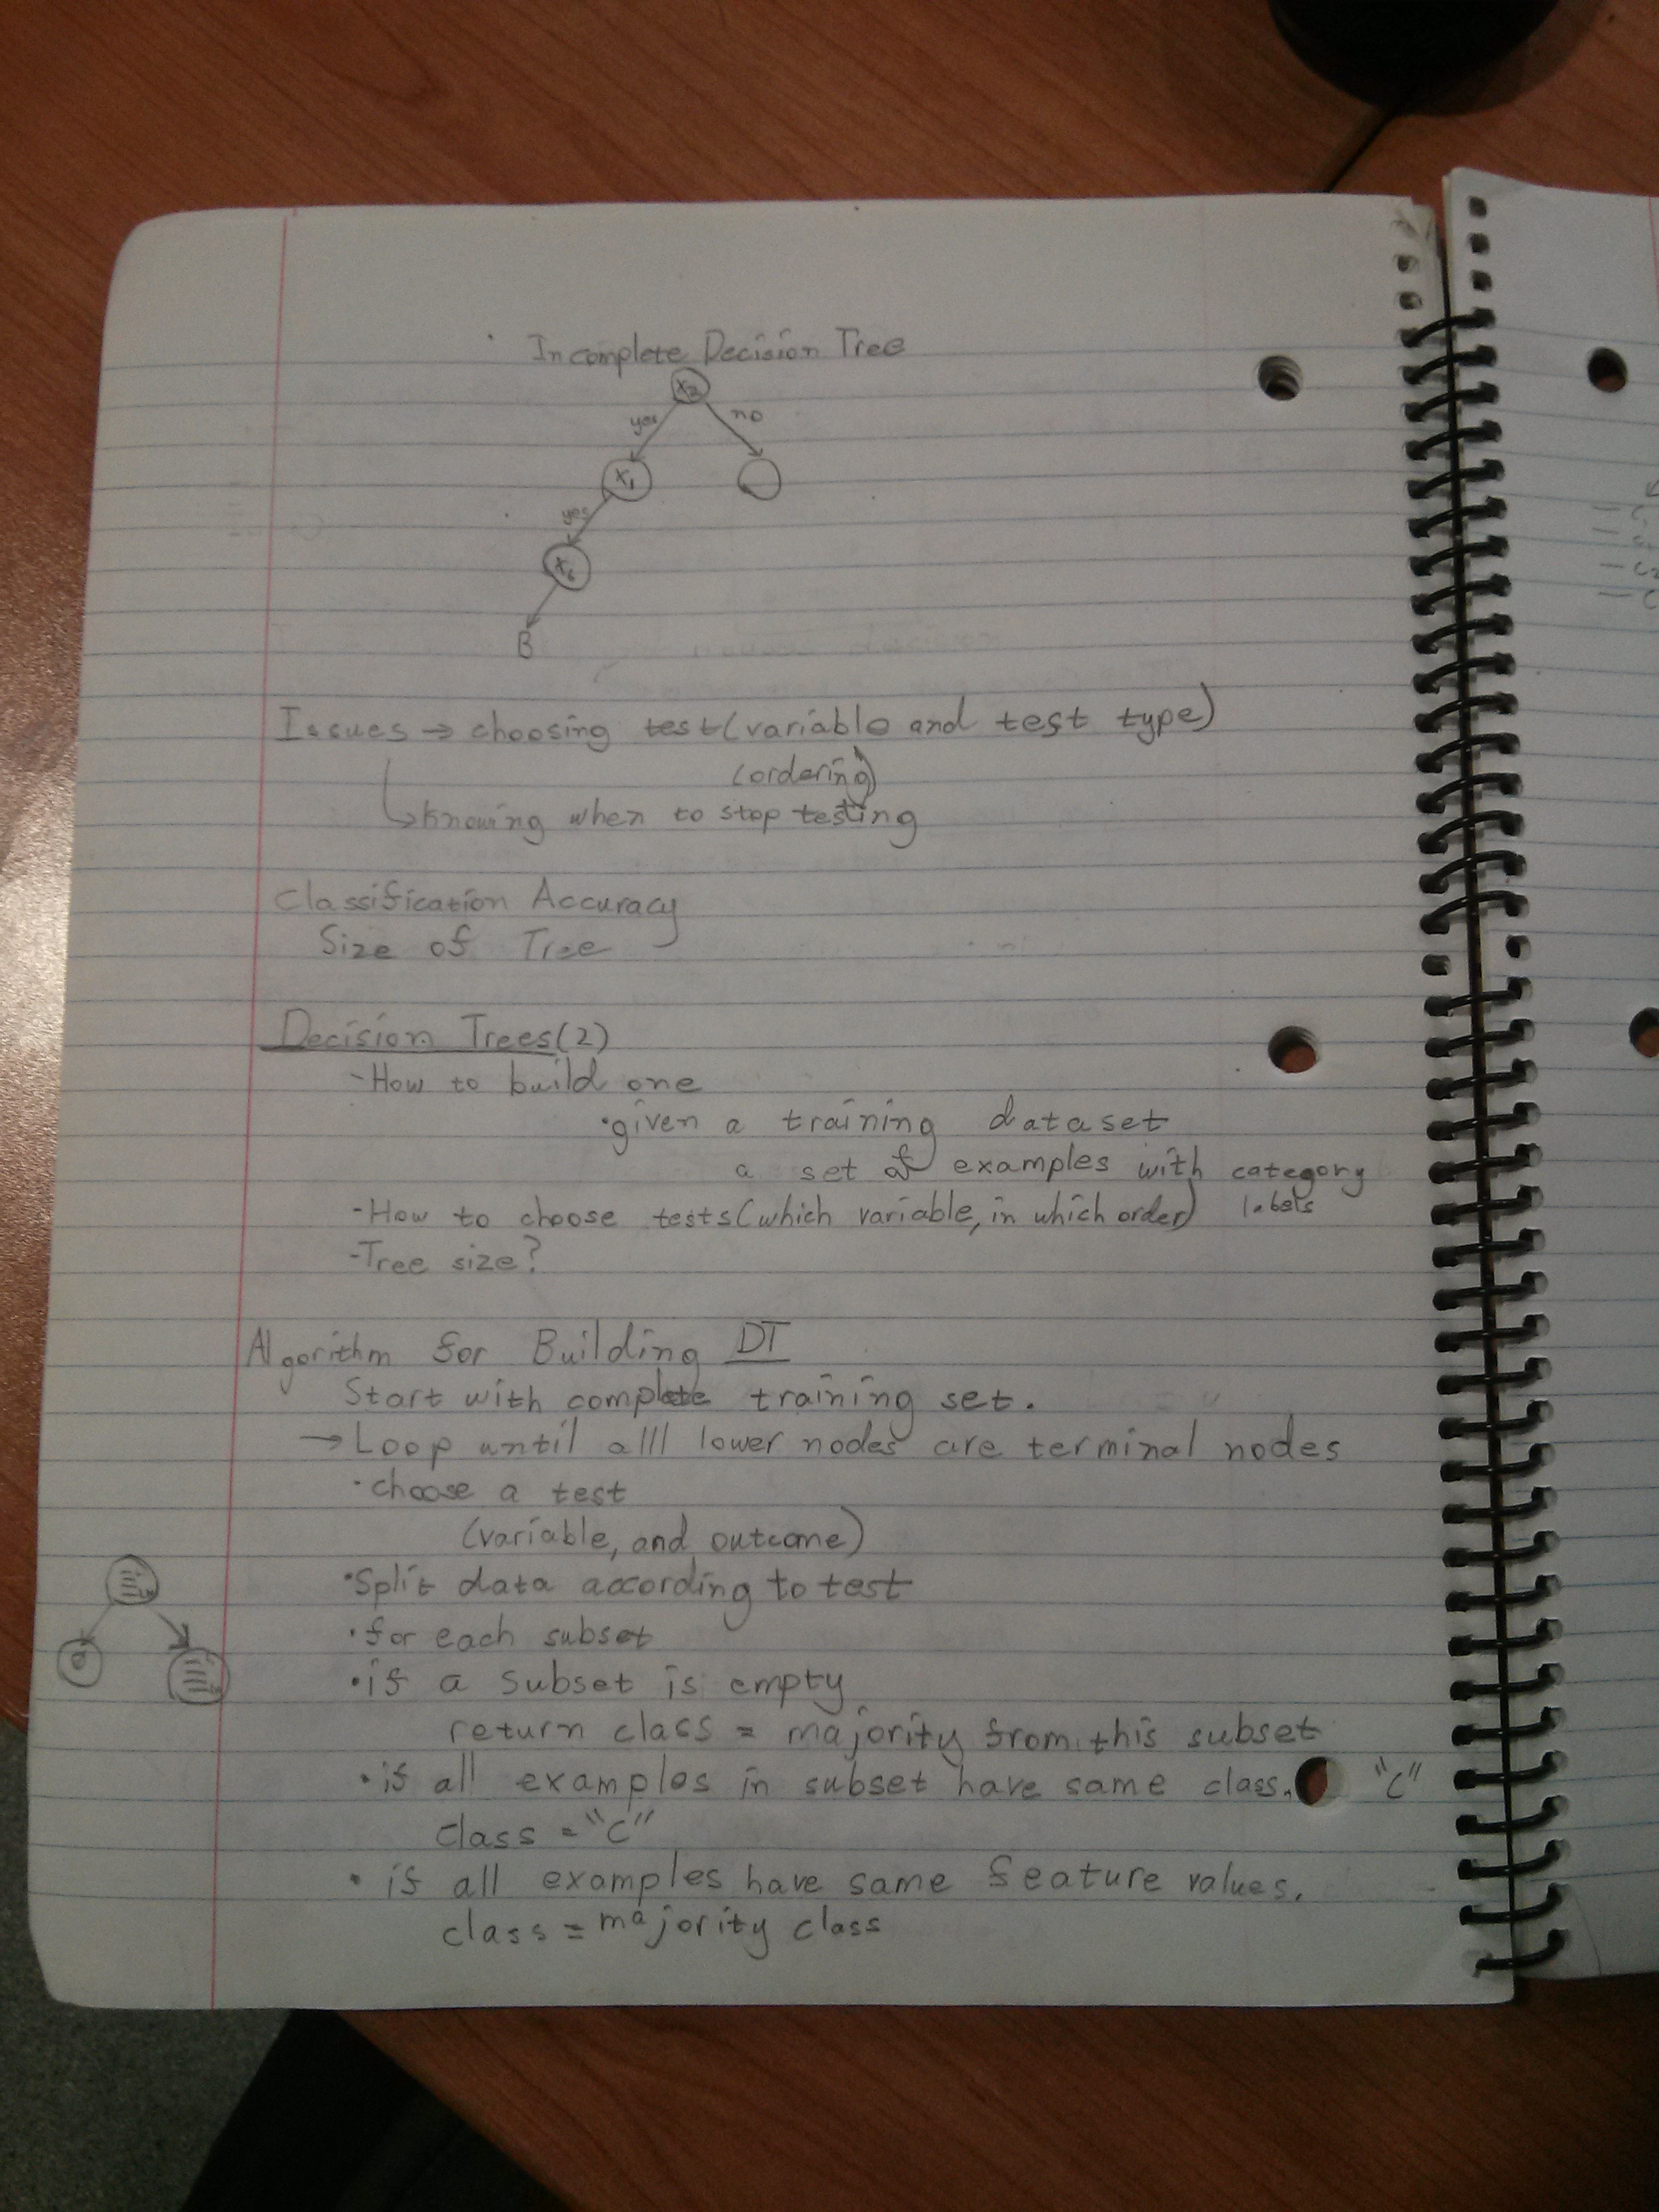 Incomplete Decision Tree
x2
yes no
x1
yes
x6
B
Issues → choosing test(variable and test type)
(ordering)
Knowing when to stop testing
Classification Accuracy
Size of Tree
Decision Trees(2)
-How to build one
•given a training dataset
a set of examples with category
labels
-How to choose tests(which variable, in which order)
-Tree size?
Algorithm for Building DT
Start with complete training set.
→ Loop until alll lower nodes are terminal nodes
•choose a test
(variable, and outcome)
•Split data according to test
•for each subset
•if a subset is empty
return class = majority from this subset
•if all examples in subset have same class. "C"
class = "C"
• if all examples have same feature values.
class = majority class